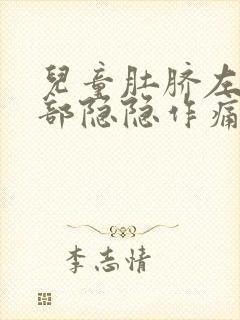 兒童肚脐左
部隐隐作痛
李志情